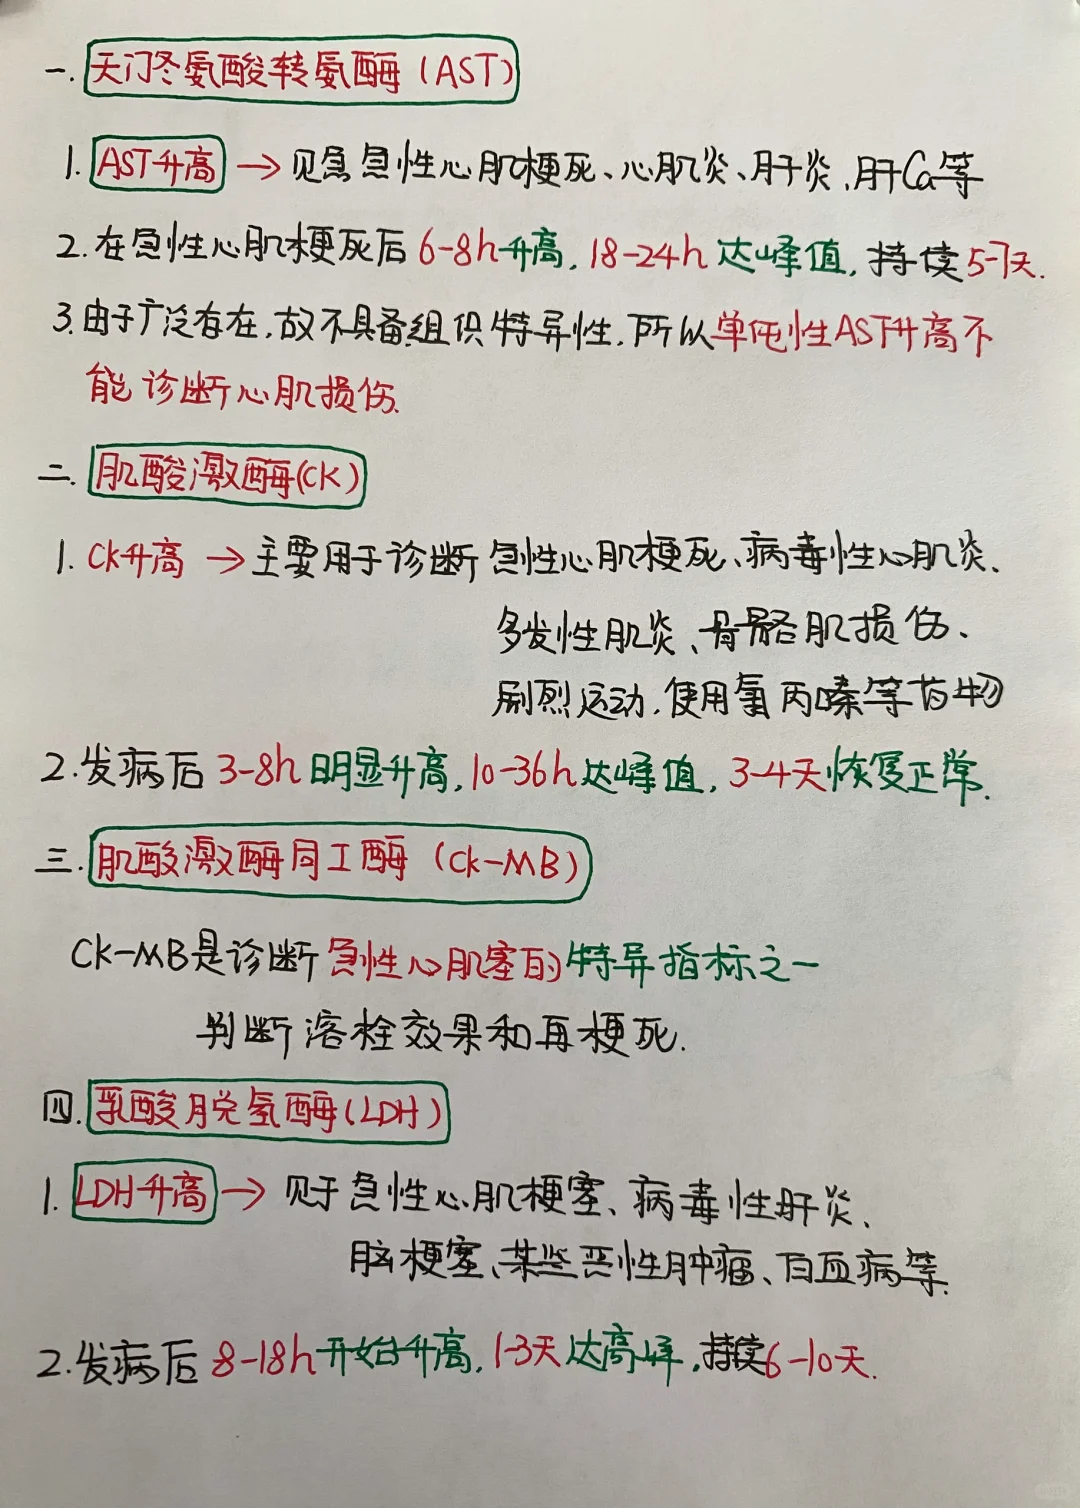 一. 天门冬氨酸转氨酶（AST）
1. AST升高 → 见急急性心肌梗死、心肌炎、肝炎、肝Ca等
2. 在急性心肌梗死后 6-8h升高, 18-24h 达峰值, 持续5-7天.
3. 由于广泛存在, 故不具备组织特异性, 所以单纯性AST升高不
能诊断心肌损伤.
二. 肌酸激酶(CK)
1. CK升高 → 主要用于诊断 急性心肌梗死、病毒性心肌炎、
多发性肌炎、骨骼肌损伤、
剧烈运动、使用氯丙嗪等药物
2. 发病后 3-8h明显升高, 10-36h达峰值, 3-4天恢复正常.
三. 肌酸激酶同工酶（CK-MB）
CK-MB是诊断急性心肌塞的特异指标之一
判断溶栓效果和再梗死.
四. 乳酸脱氢酶(LDH)
1. LDH升高 → 见于急性心肌梗塞、病毒性肝炎、
脑梗塞、某些恶性肿瘤、白血病等.
2. 发病后 8-18h开始升高, 1-3天达高峰, 持续6-10天.